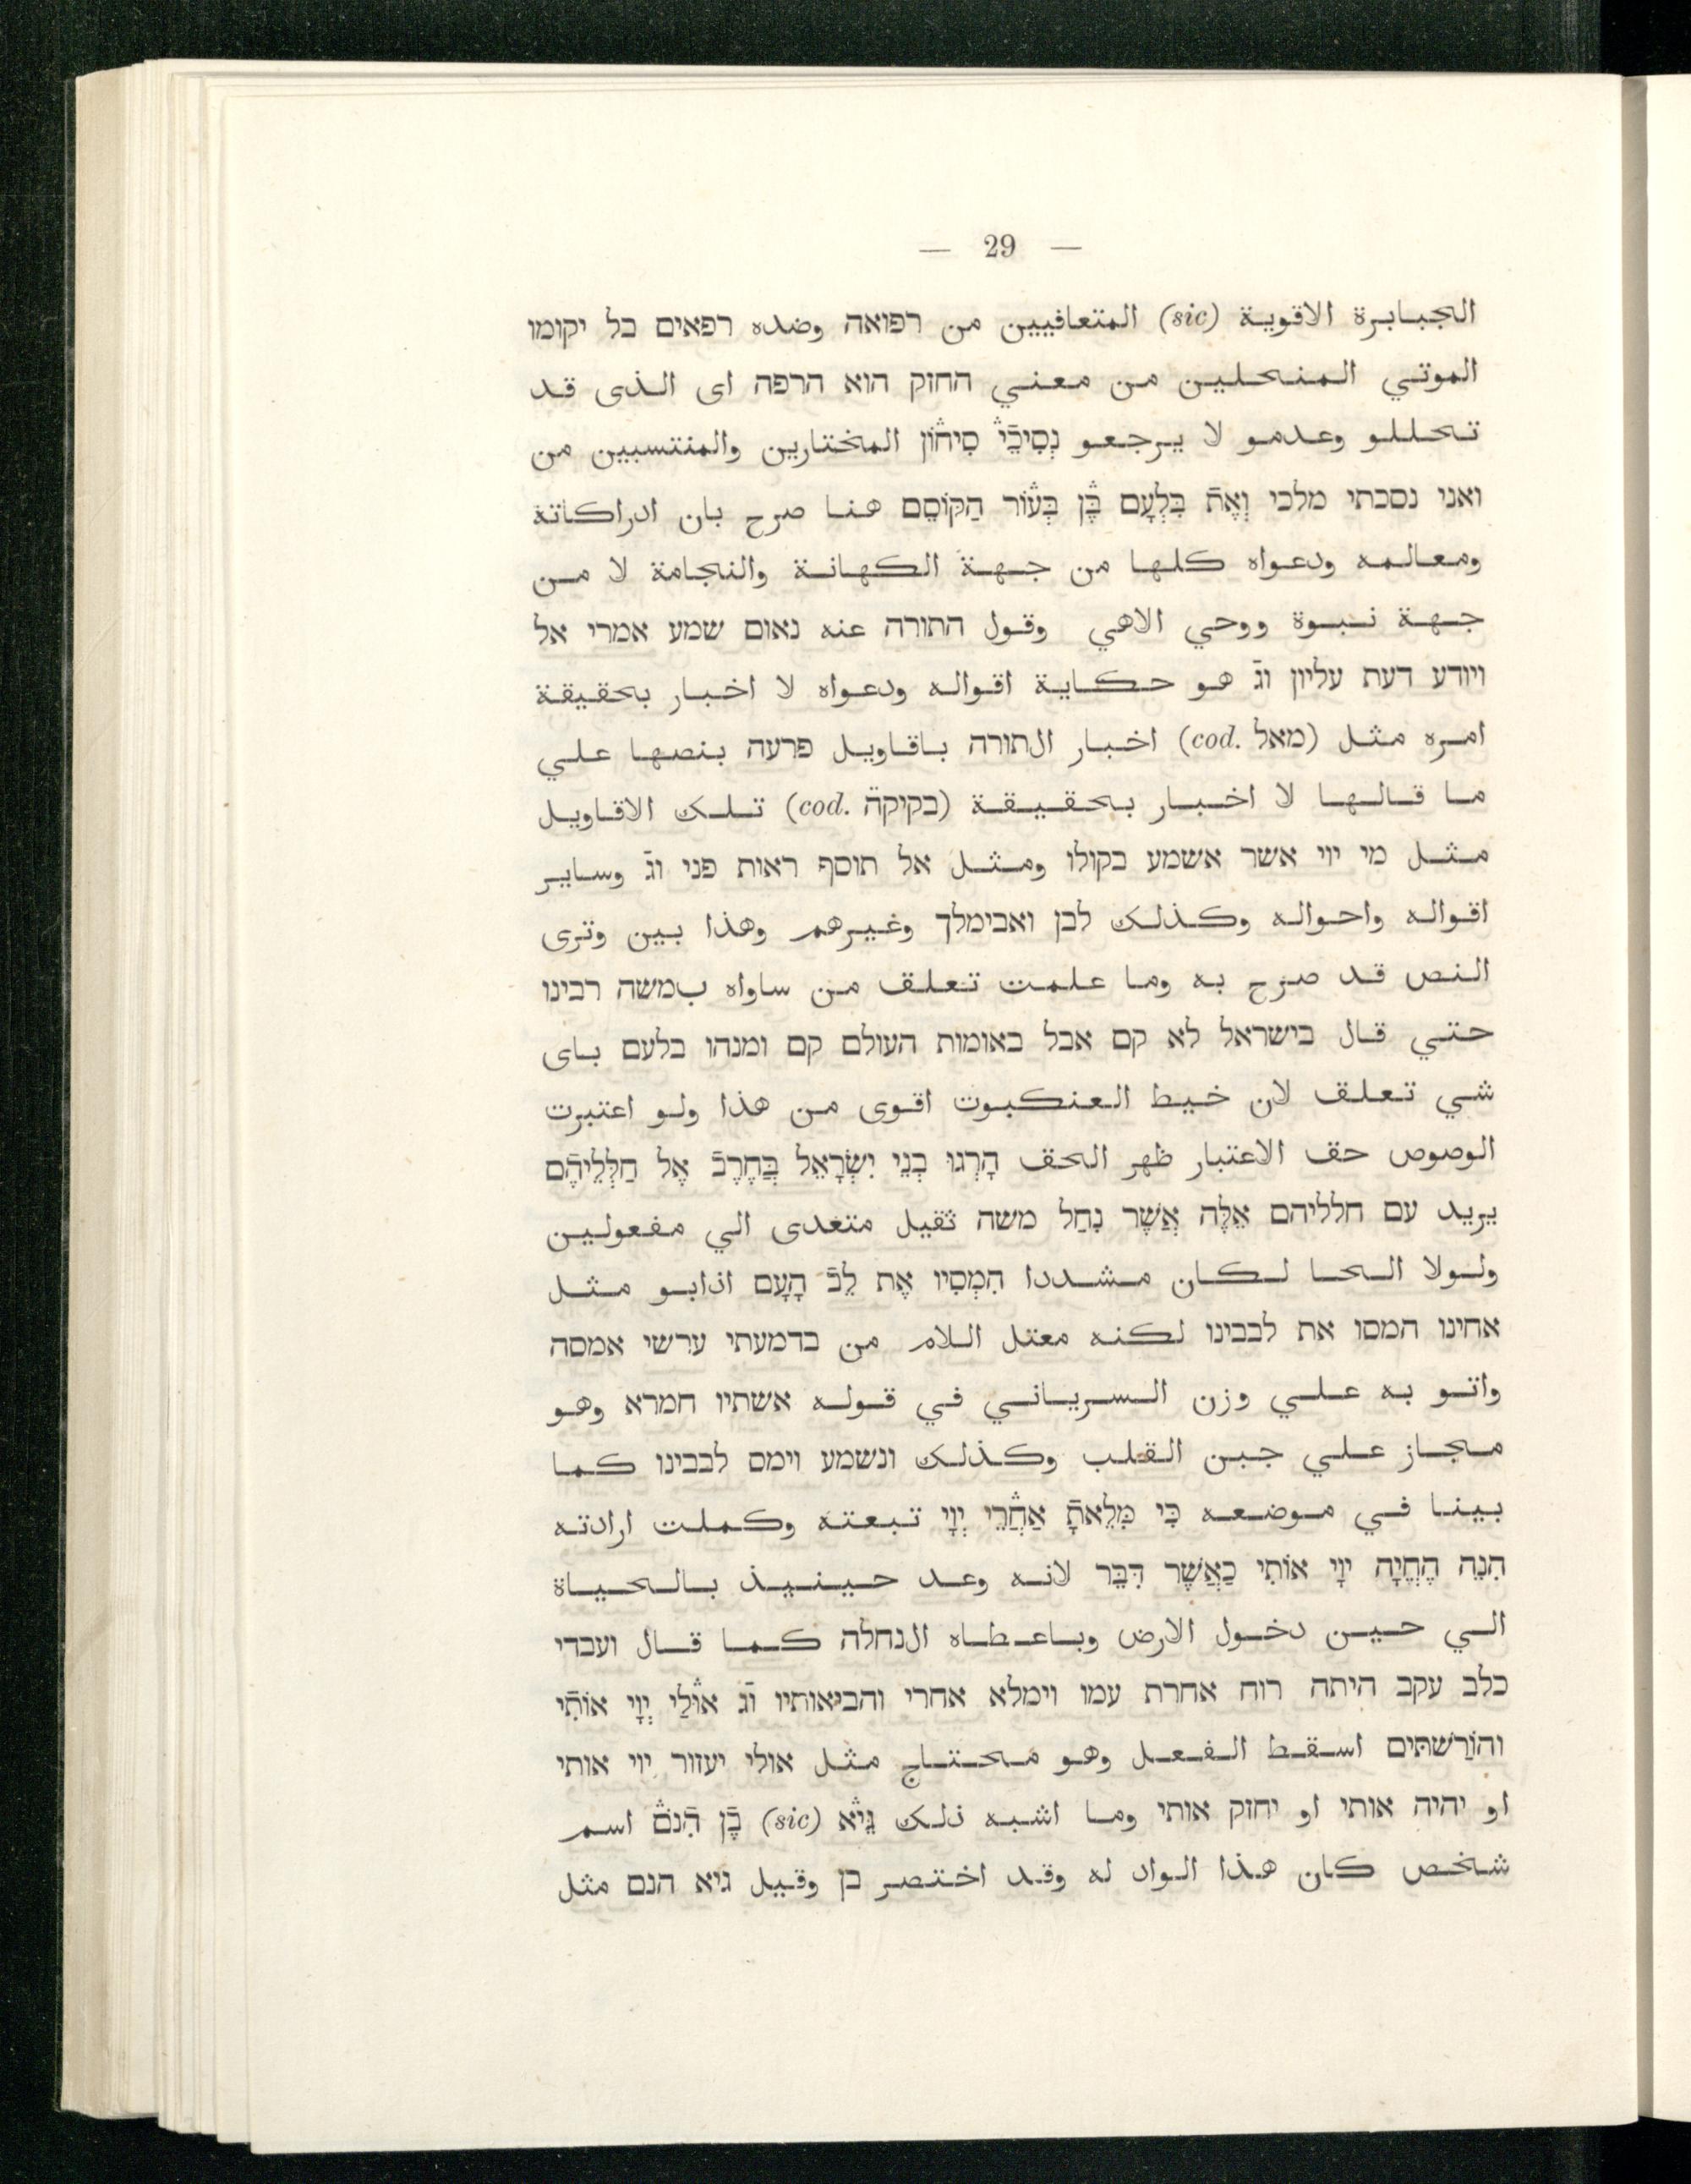 — 29 —
الجبابرة الاقوية (sic) المتعافيين من רפואה وضده רפאים בל יקומו
الموتي المنحلين من معني החזק הוא הרפה اى الذى قد
تحللو وعدمو لا يرجعو נְסִיכֵי סִיחוֹן المختارين والمنتسبين من
ואני נסכתי מלכי וְאֶת בִּלְעָם בֶּן בְּעוֹר הַקּוֹסֵם هنا صرح بان ادراكاته
ومعالمه ودعواه كلها من جهة الكهانة والنجامة لا من
جهة نبوة ووحي الاهي وقول התורה عنه נאום שמע אמרי אל
ויודע דעת עליון וג̄ هو حكاية اقواله ودعواه لا اخبار بحقيقة
امره مثل (מאל cod.) اخبار الתורה باقاويل פרעה بنصها علي
ما قالها لا اخبار بحقيقة (בקיקה̈ cod.) تلك الاقاويل
مثل מי יוי אשר אשמע בקולו ومثل אל תוסף ראות פני וג̄ وساير
اقواله واحواله وكذلك לבן ואבימלך وغيرهم وهذا بين وترى
النص قد صرح به وما علمت تعلق من ساواه بמשה רבינו
حتي قال בישראל לא קם אבל באומות העולם קם ומנהו בלעם باى
شي تعلق لان خيط العنكبوت اقوى من هذا ولو اعتبرت
الوصوص حق الاعتبار ظهر الحق הָרְגוּ בְנֵי יִשְׂרָאֵל בַּחֶרֶב אֶל חַלְלֵיהֶם
يريد עם חלליהם אֵלֶּה אֲשֶׁר נִחַל משה ثقيل متعدى الي مفعولين
ولولا الحا لكان مشددا הִמְסִיו אֶת לֵב הָעָם اذابو مثل
אחינו המסו את לבבינו لكنه معتل اللام من בדמעתי ערשי אמסה
واتو به علي وزن السرياني في قوله אשתיו חמרא وهو
مجاز علي جبن القلب وكذلك ונשמע וימס לבבינו كما
بينا في موضعه כִּי מִלֵּאתָ אַחֲרֵי יְוָי تبعته وكملت ارادته
הִנֵּה הֶחֱיָה יְוָי אוֹתִי כַּאֲשֶׁר דִּבֵּר لانه وعد حينيذ بالحياة
الي حين دخول الارض وباعطاه الנחלה كما قال ועבדי
כלב עקב היתה רוח אחרת עמו וימלא אחרי והביאותיו וג̄ אוּלַי יְוָי אוֹתִי
והוֹרַשׁתּים اسقط الفعل وهو محتاج مثل אולי יעזור יוי אותי
او יהיה אותי او יחזק אותי وما اشبه ذلك גֵּיא (sic) בֶּן הִנֹּם اسم
شخص كان هذا الواد له وقد اختصر בן وقيل גיא הנם مثل